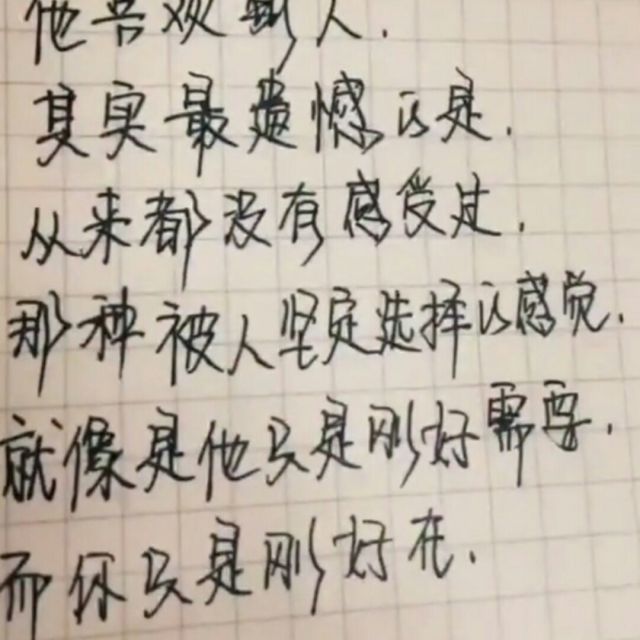 其实最遗憾的是.
从来都没有感受过.
那种被人坚定选择的感觉.
就像是他只是刚好需要.
而你只是刚好在.